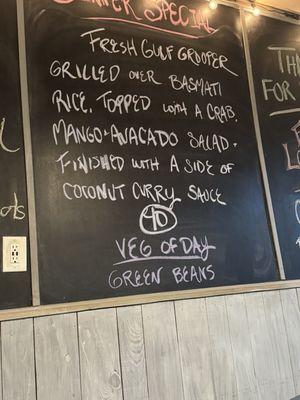 Dinner Special!
Fresh Gulf Grouper
Grilled over Basmati
Rice. Topped with a Crab,
Mango + Avacado Salad +
Finished with a side of
Coconut Curry Sauce
40
Veg of Day
Green Beans